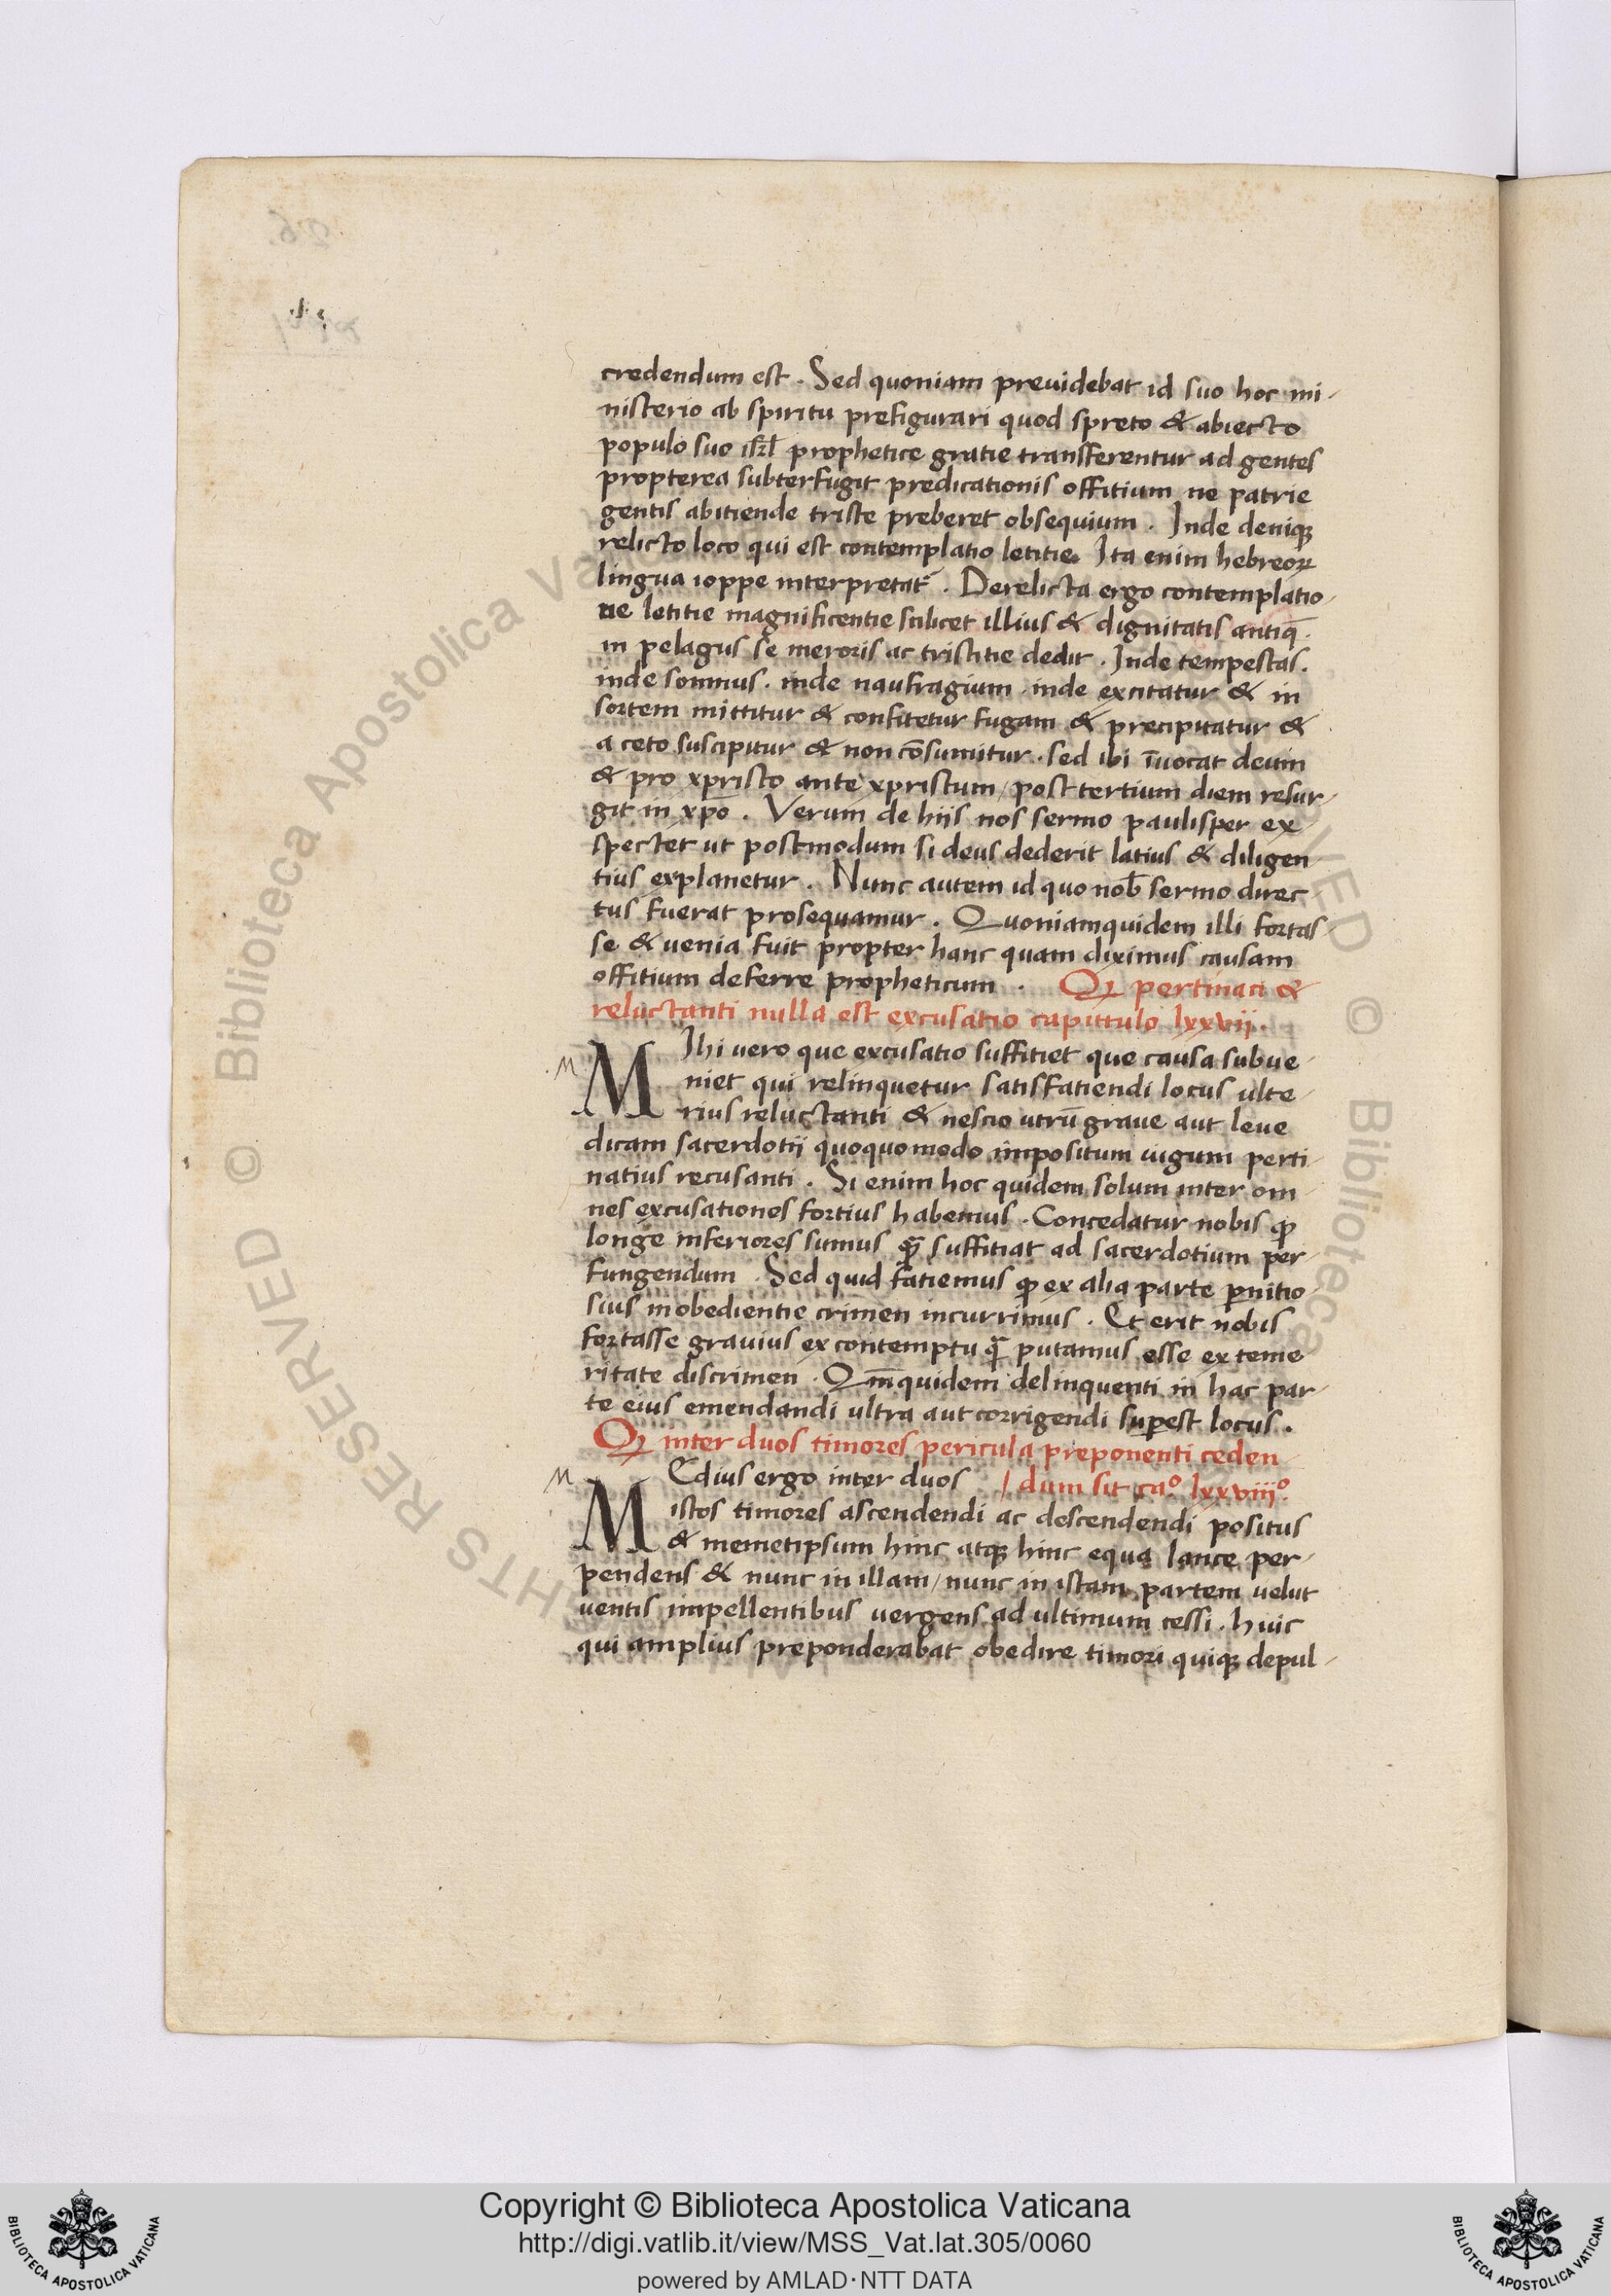 credendum est . Sed quoniam preuidebat id suo hoc mi-
nisterio ab spiritu prefigurari quod spreto & abiecto
populo suo isrl̄ prophetice gratie transferentur ad gentes
propterea subterfugit predicationis offitium ne patrie
gentis abitiende triste preberet obsequium . Inde deniqꝫ
relicto loco qui est contemplatio letitie. Ita enim hebreoꝝ
lingua ioppe interpretat᷑ . Derelicta ergo contemplatio-
ne letitie magnificentie scilicet illius & dignitatis antiq̄ .
in pelagus se meroris ac tristitie dedit . Inde tempestas .
inde somnus . inde naufragium . inde excitatur & in
sortem mittitur & confitetur fugam & precipitatur &
a ceto suscipitur & non cōsumitur . sed ibi īuocat deum
& pro xpristo ante xpristum / post tertium diem resur-
git in xp̄o . Verum de hiis nos sermo paulisper ex-
spectet ut postmodum si deus dederit latius & diligen
tius explanetur . Nunc autem id quo nob̄ sermo direc
tus fuerat prosequamur . Quoniamquidem illi fortas-
se & uenia fuit propter hanc quam diximus causam
offitium deferre propheticum . Qꝫ pertinaci &
reluctanti nulla est excusatio capittulo lxxvii .
M
MIhi uero que excusatio suffitiet que causa subue-
niet qui relinquetur satisfatiendi locus ulte-
rius reluctanti & nescio utrū graue aut leue
dicam sacerdotii quoquomodo impositum iugum perti-
natius recusanti . Si enim hoc quidem solum inter om-
nes excusationes fortius habemus . Concedatur nobis ꝙ
longe inferiores sumus qᷓ suffitiat ad sacerdotium per
fungendum . Sed quid fatiemus ꝙ ex alia parte ꝑnitio-
sius inobedientie crimen incurrimus . Et erit nobis
fortasse grauius ex contemptu qᷓ putamus esse ex teme
ritate discrimen . Qm̄quidem delinquenti in hac par-
te eius emendandi ultra aut corrigendi suꝑest locus .
Qꝫ inter duos timores pericula preponenti ceden
M
MEdius ergo inter duos / dum sit ca° lxxviiii°.
istos timores ascendendi ac descendendi positus
& memetipsum hinc atqꝫ hinc equa lance per-
pendens & nunc in illam / nunc in istam partem uelut
uentis impellentibus uergens ad ultimum cessi . huic
qui amplius preponderabat obedire timori quiqꝫ depul-
Copyright © Biblioteca Apostolica Vaticana
http://digi.vatlib.it/view/MSS_Vat.lat.305/0060
powered by AMLAD·NTT DATA
BIBLIOTECA APOSTOLICA VATICANA
BIBLIOTECA APOSTOLICA VATICANA